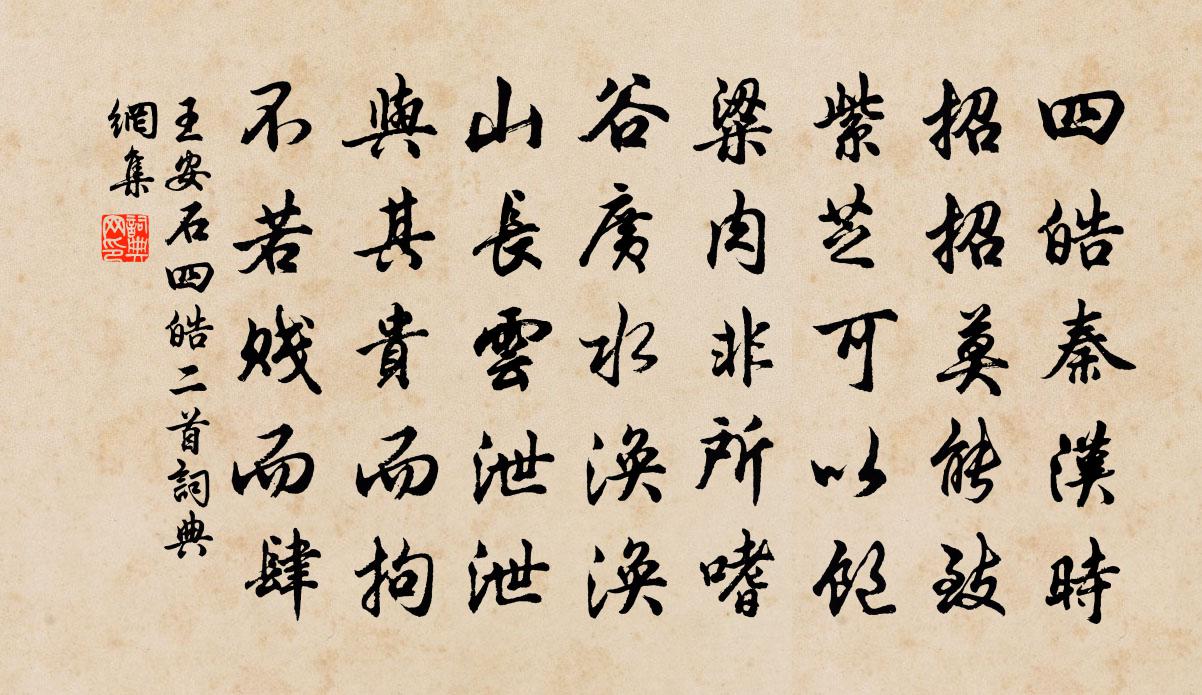 四皓秦漢時
招招莫能致
紫芝可以飽
粱肉非所嗜
谷廣水渙渙
山長雲泄泄
與其貴而拘
不若賤而肆
王安石四皓二首詞典
網集
詞典
网印